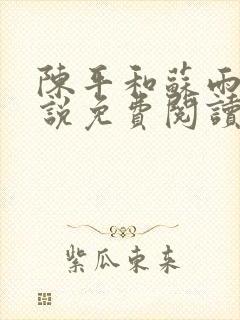 陳平和蘇雨
說免費閱讀
紫瓜東来